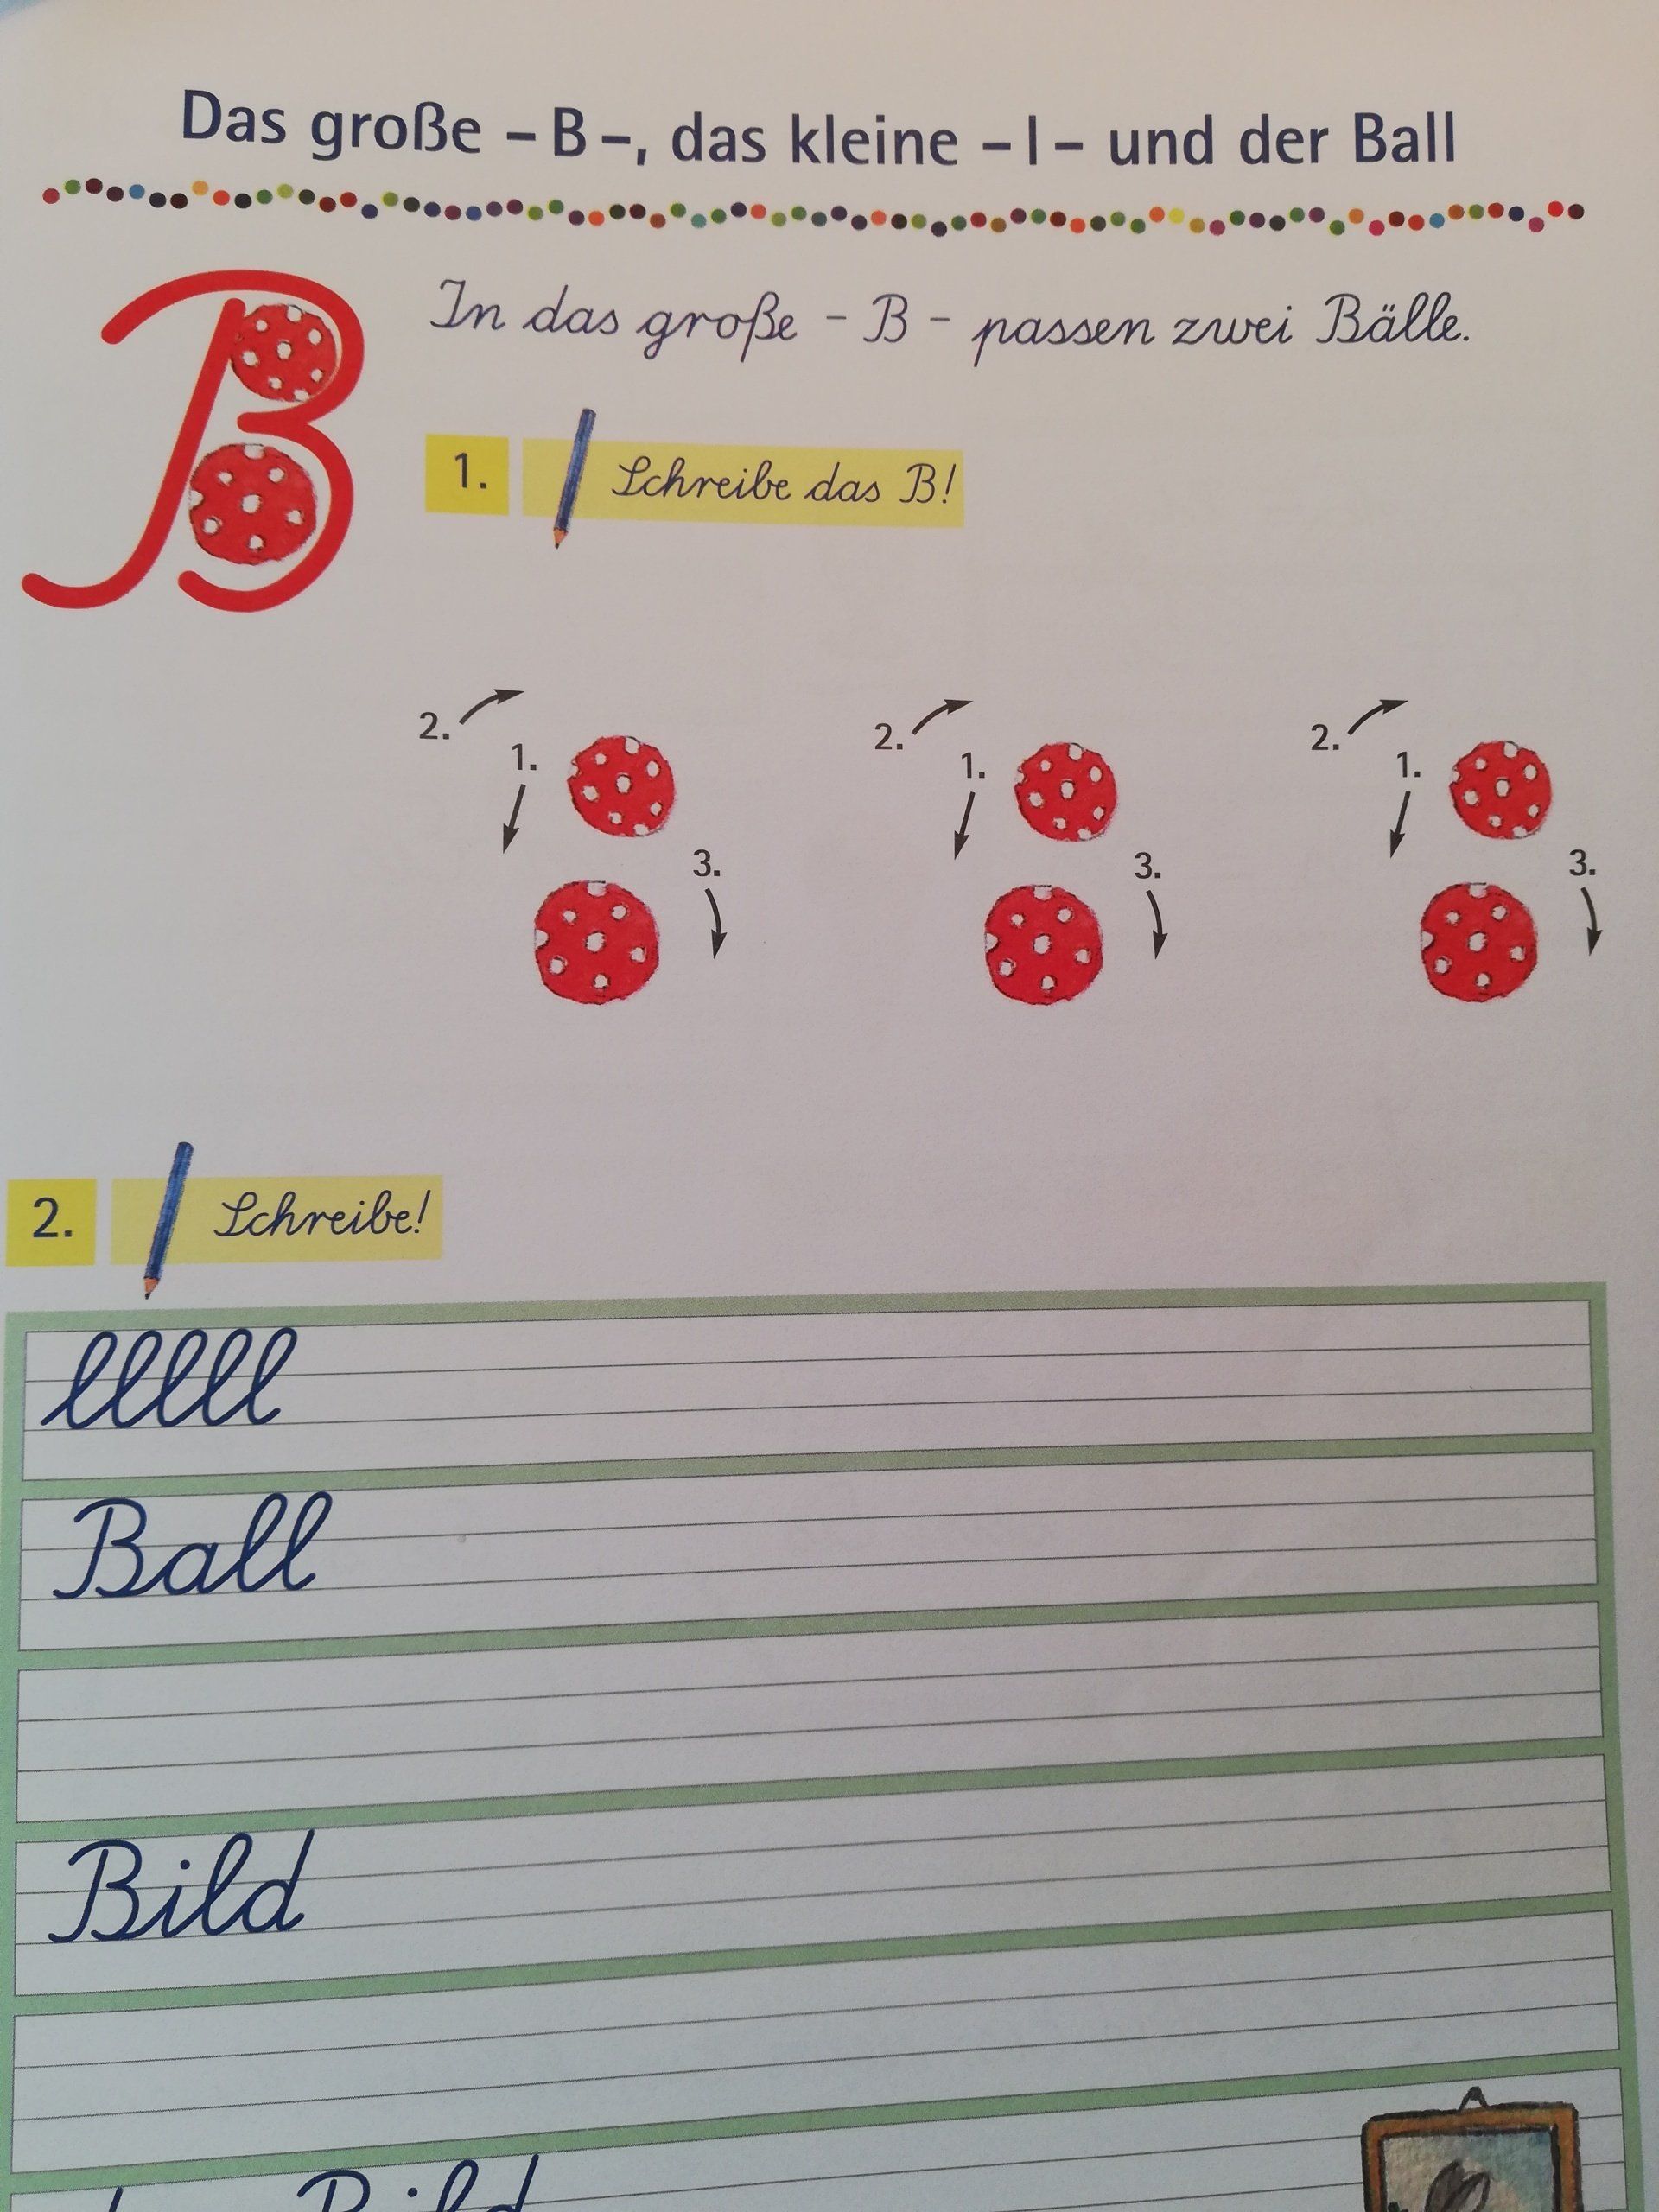 Das große – B –, das kleine – l – und der Ball
B
In das große - B - passen zwei Bälle.
1. Schreibe das B!
2. 2. 2.
1. 1. 1.
3. 3. 3.
2. Schreibe!
lllll
Ball
Bild
Bild